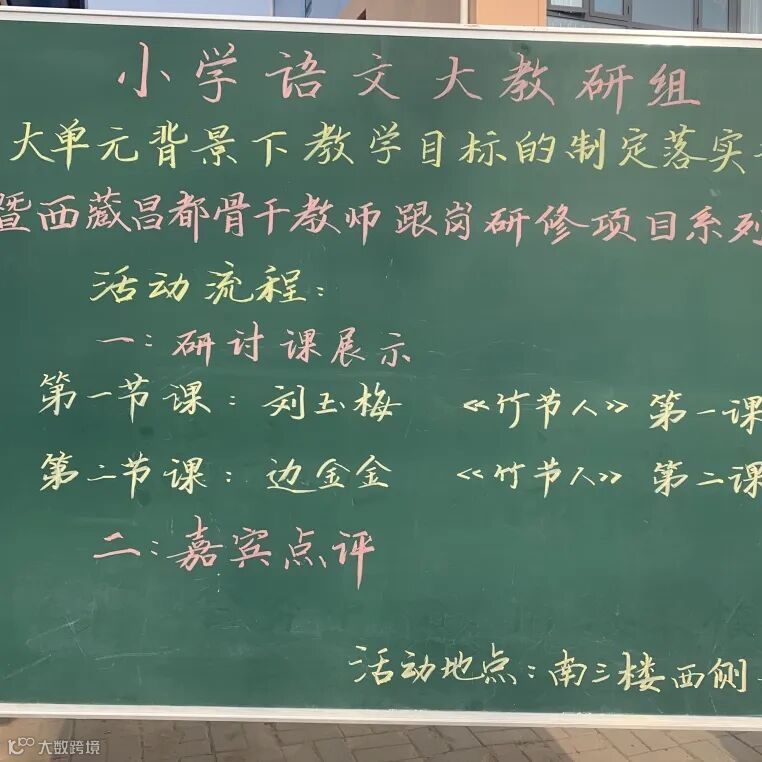 小学语文大教研组
大单元背景下教学目标的制定落实
暨西藏昌都骨干教师跟岗研修项目系列
活动流程：
一：研讨课展示
第一节课：刘玉梅 《竹节人》第一课
第二节课：边金金 《竹节人》第二课
二：嘉宾点评
活动地点：南三楼西侧
大数跨境